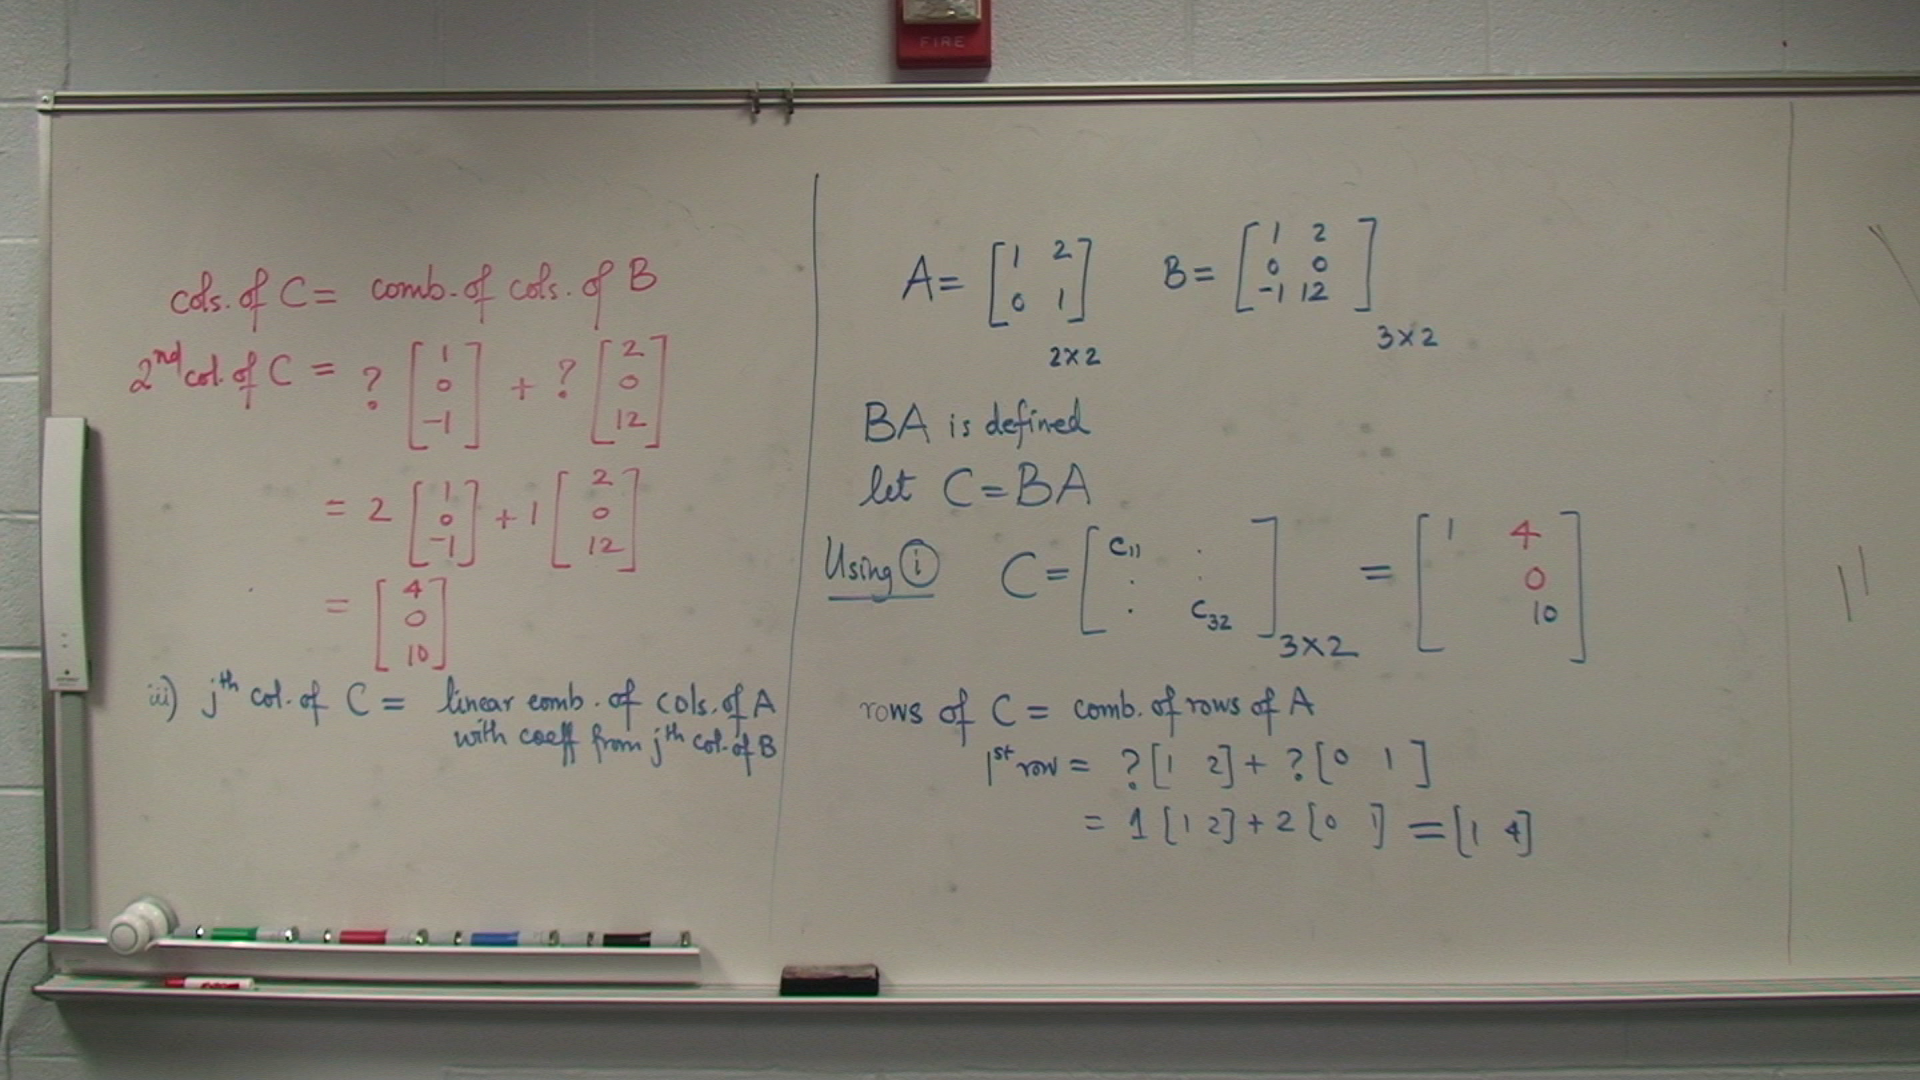 FIRE
cols. of C = comb. of cols. of B
2nd col. of C = ? [1 0 -1] + ? [2 0 12]
= 2 [1 0 -1] + 1 [2 0 12]
= [4 0 10]
iii) jth col. of C = linear comb. of cols. of A
with coeff from jth col. of B
A = [1 2
0 1] 2×2
B = [1 2
0 0
-1 12] 3×2
BA is defined
let C = BA
Using (i) C = [c11 .
. .
. c32] 3×2 = [1 4
0
10]
rows of C = comb. of rows of A
1st row = ? [1 2] + ? [0 1]
= 1 [1 2] + 2 [0 1] = [1 4]